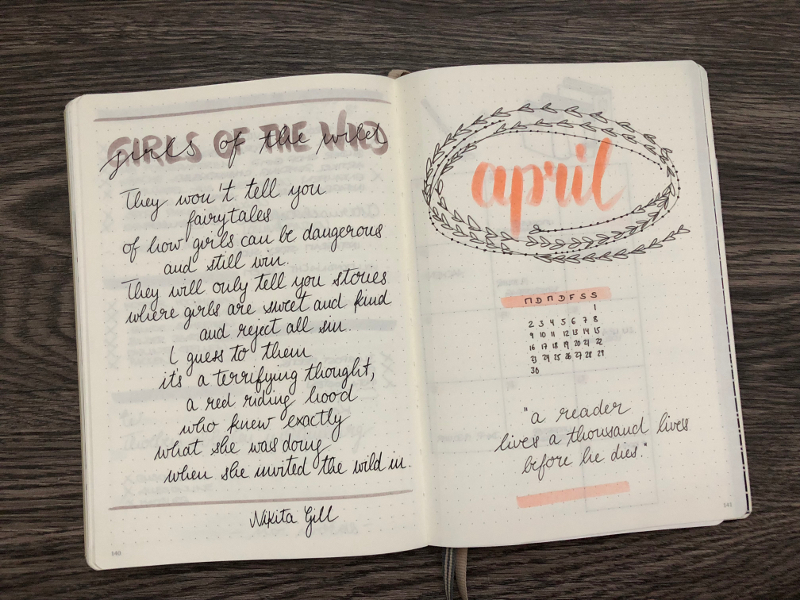 GIRLS OF THE WILD
girls of the wild
They won't tell you
fairytales
of how girls can be dangerous
and still win.
They will only tell you stories
where girls are sweet and kind
and reject all sin.
I guess to them
it's a terrifying thought,
a red riding hood
who knew exactly
what she was doing
when she invited the wild in.
Nikita Gill
140
april
M D M D F S S
1
2 3 4 5 6 7 8
9 10 11 12 13 14 15
16 17 18 19 20 21 22
23 24 25 26 27 28 29
30
"a reader
lives a thousand lives
before he dies."
141